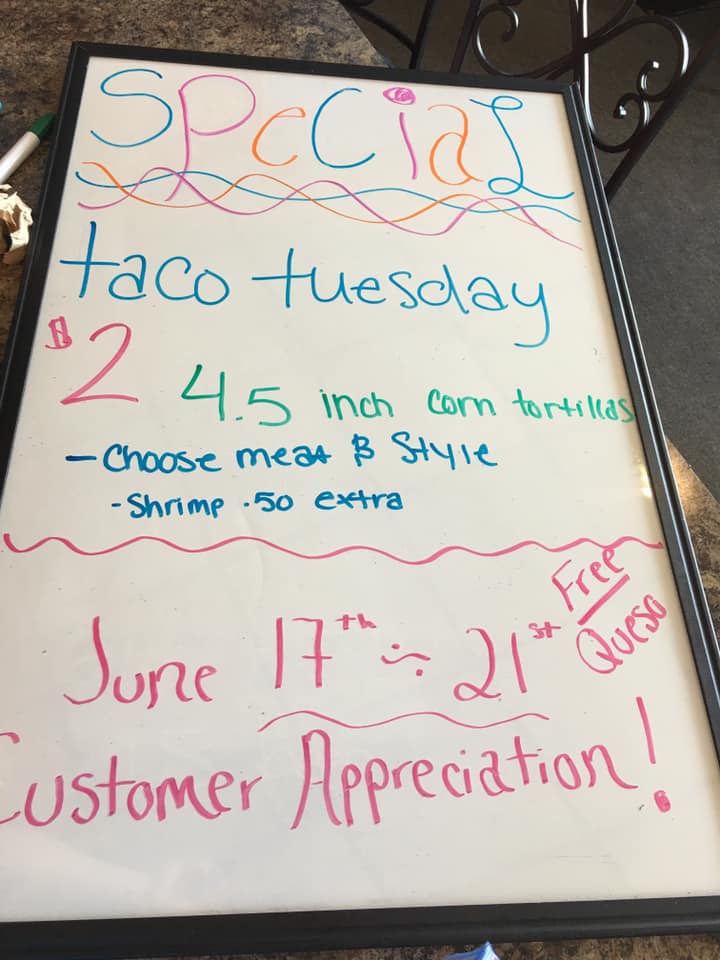 SPeCiaL
taco tuesday
$2 4.5 inch corn tortillas
- Choose meat & Style
- Shrimp .50 extra
June 17th ÷ 21st
Free
Queso
Customer Appreciation!